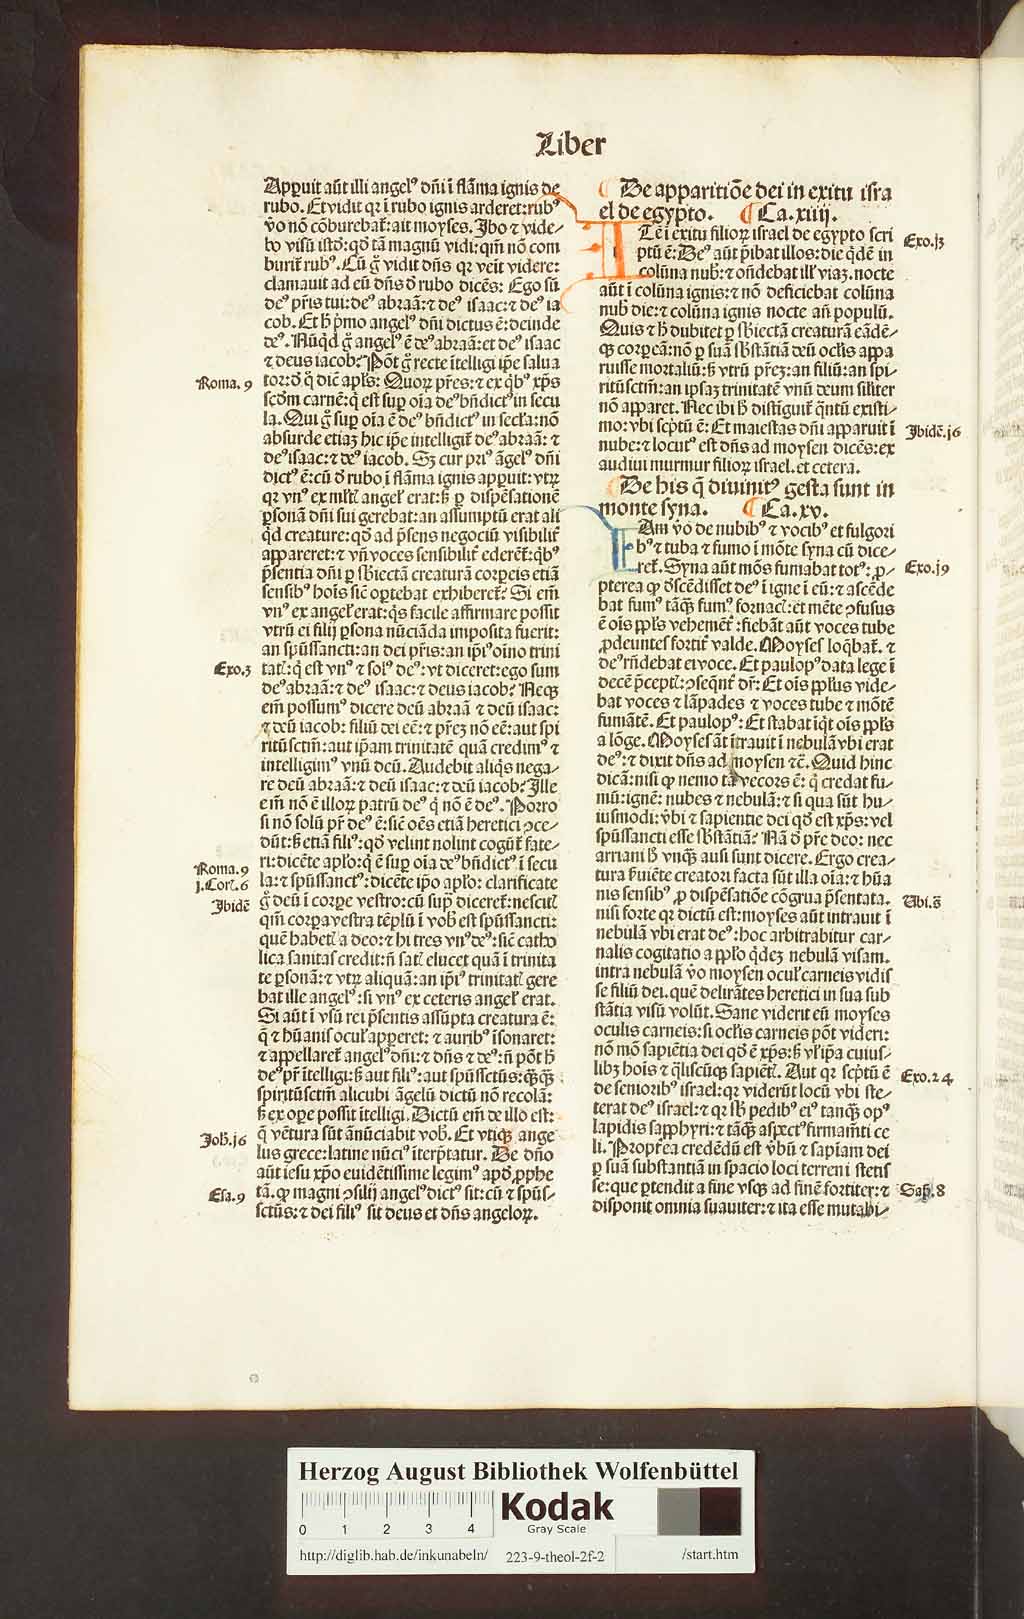 Liber
Appuit aūt illi angelꝰ dn̄i ī flāma ignis de
rubo. Et vidit qꝛ ī rubo ignis arderet: rubꝰ
ṽo nō cōburebat᷑: ait moyses. Ibo ⁊ vide-
bo visū istō: qd̄ tā magnū vidi: qm̄ nō com
burit᷑ rubꝰ. Cū g̊ vidit dn̄s qꝛ veīt videre:
clamauit ad eū dn̄s d̄ rubo dicēs: Ego sū
deꝰ pr̄is tui: deꝰ abraā: ⁊ deꝰ isaac: ⁊ deꝰ ia
cob. Et h̄ p̄mo angelꝰ dn̄i dictus ē: deinde
deꝰ. Nūqd̄ g̊ angelꝰ ē deꝰ abraā: et deꝰ isaac
⁊ deus iacob? Pōt g̊ recte ītelligi ip̄e salua
Roma. 9
tor: d̄ q̄ dic̄ apl̄s: Quoꝝ pr̄es: ⁊ ex qb̄ꝰ xp̄s
scd̄m carnē: q̄ est suꝑ oīa deꝰ bn̄dictꝰ in secu
la. Qui g̊ suꝑ oīa ē deꝰ bn̄dictꝰ in secl̄a: nō
absurde etiaꝫ hic ip̄e intelligit᷑ deꝰ abraā: ⁊
deꝰ isaac: ⁊ deꝰ iacob. Sꝫ cur priꝰ āgelꝰ dn̄i
dictꝰ ē: cū d̄ rubo ī flāma ignis appuit: vtꝝ
qꝛ vnꝰ ex mlt̄ angel̄ erat: sꝫ ꝑ dispēsationē
ꝑsonā dn̄i sui gerebat: an assumptū erat ali
qd̄ creature: qd̄ ad p̄sens negociū visibilit᷑
appareret: ⁊ vn̄ voces sensibilit᷑ ederēt᷑: qb̄ꝰ
p̄sentia dn̄i ꝑ sb̄iectā creaturā corꝑeis etiā
sensibꝰ hoīs sic̄ oꝑtebat exhiberet᷑? Si em̄
vnꝰ ex angel̄ erat: qs̄ facile affirmare possit
vtrū ei filij ꝑsona nūciāda imposita fuerit:
an spūssancti: an dei pr̄is: an ip̄iꝰ oīno trini
Exo.3
tatꝭ: q̄ est vnꝰ ⁊ solꝰ deꝰ: vt diceret: ego sum
deꝰ abraā: ⁊ deꝰ isaac: ⁊ deus iacob? Neqꝫ
em̄ possumꝰ dicere deū abraā ⁊ deū isaac:
⁊ deū iacob: filiū dei eē: ⁊ pr̄eꝫ nō eē: aut spi
ritūsctm̄: aut ip̄am trinitatē quā credimꝰ ⁊
intelligimꝰ vnū deū. Audebit aliqs̄ nega-
re deū abraā: ⁊ deū isaac: ⁊ deū iacob? Ille
em̄ nō ē illoꝝ patrū deꝰ q̄ nō ē deꝰ. Porro
si nō solū pr̄ deꝰ ē: sic̄ oēs etiā heretici ꝯce-
dūt: sꝫ etiā filiꝰ: qd̄ velint nolint cogūt᷑ fate-
Roma. 9
ri: dicēte apl̄o: q̄ ē suꝑ oīa deꝰ bn̄dictꝰ ī secu
j. Corꝭ. 6
la: ⁊ spūssanctꝰ: dicēte ip̄o apl̄o: clarificate
Ibidē
g̊ deū ī corꝑe vestro: cū sup̄ diceret᷑: nescitꝭ
qm̄ corꝑa vestra tēplū ī vob̄ est spūssancti:
quē habetꝭ a deo: ⁊ hi tres vnꝰ deꝰ: sic̄ catho
lica sanitas credit: n̄ satꝭ elucet quā ī trinita
te ꝑsonā: ⁊ vtꝝ aliquā: an ip̄iꝰ trinitatꝭ gere
bat ille angelꝰ: si vnꝰ ex ceteris angel̄ erat.
Si aūt ī vsū rei p̄sentis assūpta creatura ē:
q̄ ⁊ hūanis ocul̄ apꝑeret: ⁊ auribꝰ īsonaret:
⁊ appellaret᷑ angelꝰ dn̄i: ⁊ dn̄s ⁊ deꝰ: n̄ pōt h̄
deꝰ pr̄ ītelligi: sꝫ aut filiꝰ: aut spūssctūs: qq̄ꝫ
spiritūsctm̄ alicubi āgelū dictū nō recolā:
sꝫ ex oꝑe possit ītelligi. Dictū em̄ de illo est:
Joh̄. j6
q̄ vētura sūt ānūciabit vob̄. Et vtiqꝫ ange
lus grece: latine nūciꝰ īterp̄tatur. De dn̄o
aūt iesu xp̄o euidētissime legimꝰ apd̄ ꝓphe
Esa. 9
tā. ꝙ magni ꝯsilij angelꝰ dictꝰ sit: cū ⁊ spūs-
sctūs: ⁊ dei filiꝰ sit deus et dn̄s angeloꝝ.
¶ De apparitiōe dei in exitu isra
el de egypto. ¶ Ca. xiiij.
ITē ī exitu filioꝝ israel de egypto scri
Exo. j3
ptū ē: Deꝰ aūt p̄ibat illos: die qd̄ē in
colūna nub̄: ⁊ on̄debat ill̄ viaꝫ. nocte
aūt ī colūna ignis: ⁊ nō deficiebat colūna
nub̄ die: ⁊ colūna ignis nocte an̄ populū.
Quis ⁊ h̄ dubitet ꝑ sb̄iectā creaturā eādē-
qꝫ corꝑeā: nō ꝑ suā sb̄stātiā deū ocl̄is appa
ruisse mortaliū: sꝫ vtrū pr̄eꝫ: an filiū: an spi-
ritūsctm̄: an ip̄saꝫ trinitatē vnū deum sil̄iter
nō apparet. Nec ibi h̄ distīguit᷑ q̄ntū existi-
mo: vbi scp̄tū ē: Et maiestas dn̄i apparuit ī
Ibidē. j6
nube: ⁊ locutꝰ est dn̄s ad moysen dicēs: ex
audiui murmur filioꝝ israel. et cetera.
¶ De his q̄ diuinitꝰ gesta sunt in
monte syna. ¶ Ca. xv.
IAm ṽo de nubibꝰ ⁊ vocibꝰ et fulgori
bꝰ ⁊ tuba ⁊ fumo ī mōte syna cū dice-
ret᷑. Syna aūt mōs fumabat totꝰ: ꝓ-
Exo. j9
pterea ꝙ d̄scēdisset deꝰ ī igne ī eū: ⁊ ascēde
bat fumꝰ tāqꝫ fumꝰ fornacꝭ: et mēte ꝯfusus
ē oīs ppl̄s vehemēt᷑: fiebāt aūt voces tube
ꝓdeuntes fortit᷑ valde. Moyses loqb̄at᷑. ⁊
deꝰ rn̄debat ei voce. Et paulopꝰ data lege ī
decē p̄ceptꝭ: ꝯseqn̄t᷑ dr̄: Et oīs ppl̄us vide-
bat voces ⁊ lāpades ⁊ voces tube ⁊ mōtē
fumātē. Et paulopꝰ: Et stabat iq̄t oīs ppl̄s
a lōge. Moyses āt ītrauit ī nebulā vbi erat
deꝰ: ⁊ dixit dn̄s ad moysen ⁊c̄. Quid hinc
dicā: nisi ꝙ nemo tā vecors ē: q̄ credat fu-
mū: ignē: nubes ⁊ nebulā: ⁊ si qua sūt hu-
iusmodi: ṽbi ⁊ sapientie dei qd̄ est xp̄s: vel
spūssancti esse sb̄stātiā? Nā d̄ pr̄e deo: nec
arriani h̄ vnqꝫ̄ ausi sunt dicere. Ergo crea-
tura ẜuiēte creatori facta sūt illa oīa: ⁊ hūa
nis sensibꝰ ꝓ dispēsatiōe cōgrua p̄sentata.
Vbi.s̄
nisi forte qꝛ dictū est: moyses aūt intrauit ī
nebulā vbi erat deꝰ: hoc arbitrabitur car-
nalis cogitatio a ppl̄o qd̄eꝫ nebulā visam.
intra nebulā ṽo moysen ocul̄ carneis vidis
se filiū dei. quē delirātes heretici in sua sub
stātia visū volūt. Sane viderit eū moyses
oculis carneis: si ocl̄is carneis pōt videri:
nō mō sapiētia dei qd̄ ē xp̄s: sꝫ vl̓ ip̄a cuius-
libꝫ hoīs ⁊ q̄liscūqꝫ sapiētꝭ. Aut qꝛ scp̄tū ē
Exo. 24
de senioribꝰ israel: qꝛ viderūt locū vbi ste-
terat deꝰ israel: ⁊ qꝛ sb̄ pedibꝰ eiꝰ tanqꝫ̄ opꝰ
lapidis sapphyri: ⁊ tāqꝫ̄ aspectꝰ firmam̄ti ce
li. Propt̓ea credēdū est ṽbū ⁊ sapīam dei
ꝑ suā substantiā in spacio loci terreni stetis
se: que ꝑtendit a fine vsqꝫ ad finē fortiter: ⁊
Sap̄. 8
disponit omnia suauiter: ⁊ ita esse mutabi-
Herzog August Bibliothek Wolfenbüttel
0 1 2 3 4
Kodak
Gray Scale
http://diglib.hab.de/inkunabeln/ 223-9-theol-2f-2 /start.htm